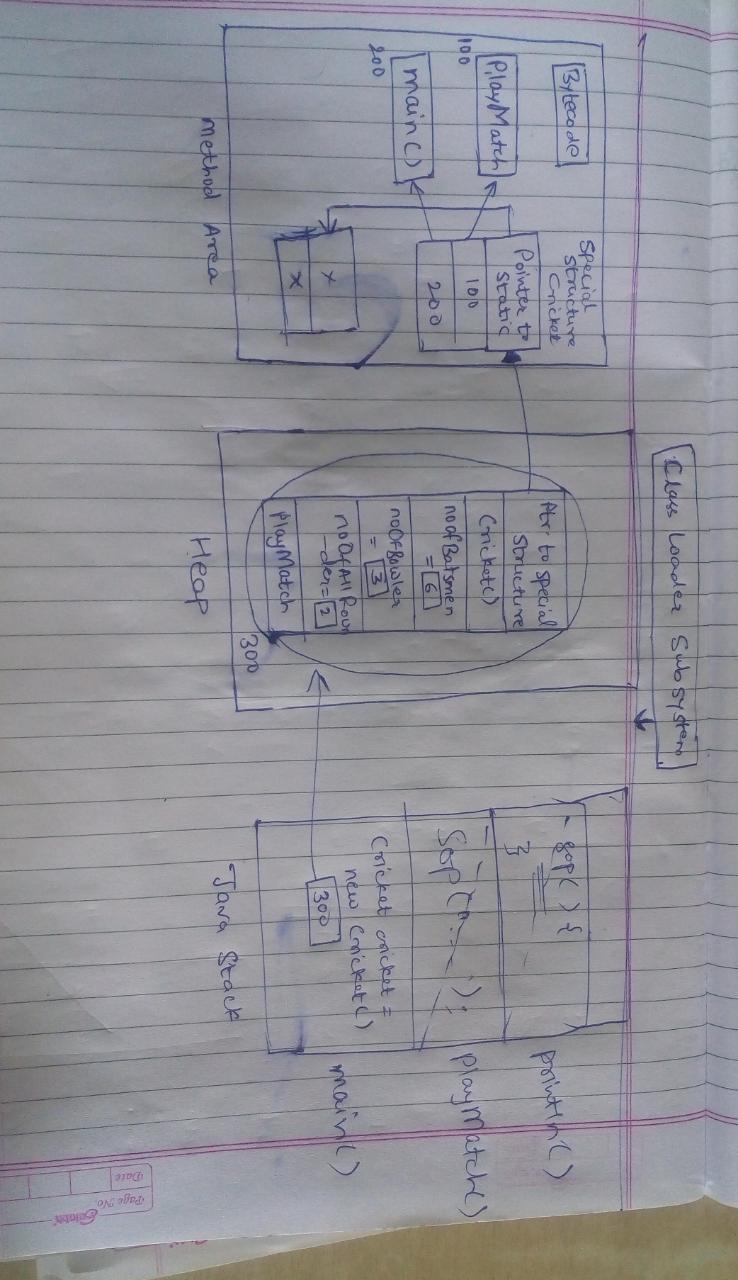 Class Loader Subsystem
Bytecode
PlayMatch
100
main()
200
Special
Structure
Cricket
Pointer to
Static
100
200
X
X
Method Area
Ptr to special
Structure
Cricket()
noofBatsmen
= 6
noOfBowler
= 3
noOfAllRoun
-der= 2
PlayMatch
300
Heap
sop() {
}
Sop(" ");
Cricket cricket =
new Cricket()
300
Java Stack
println()
playMatch()
main()
Page No.
Date